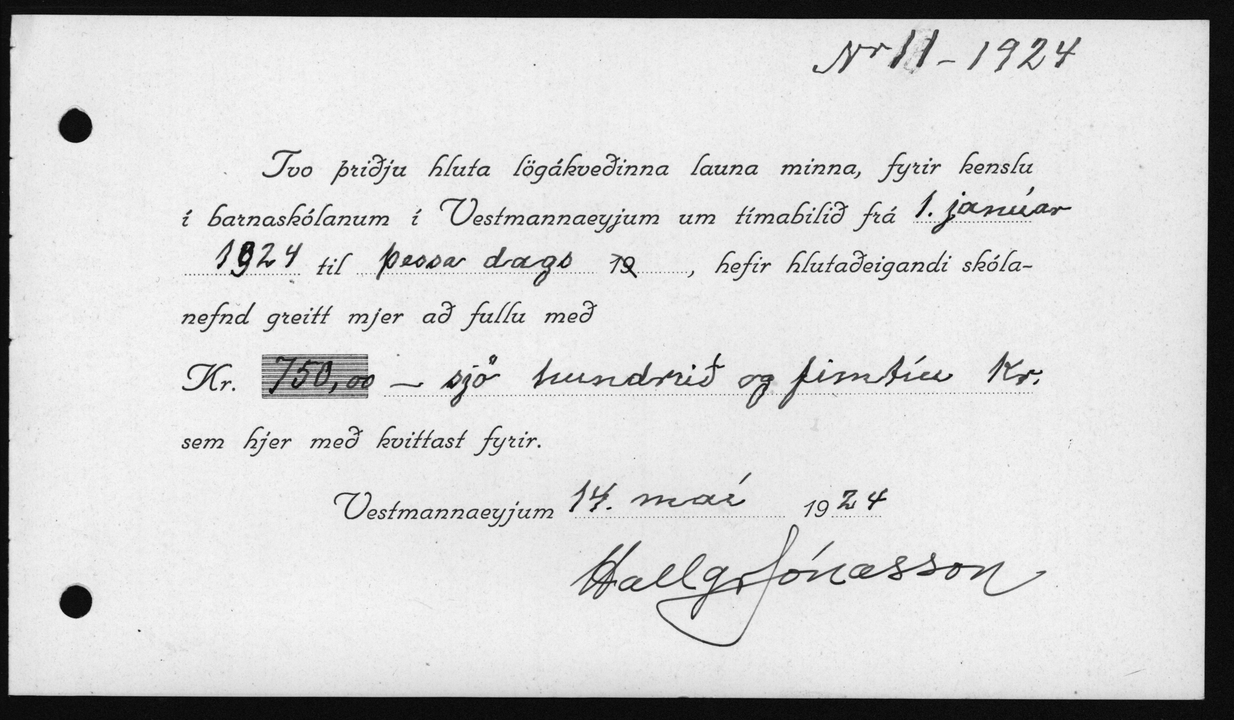 Nr 11 - 1924
Tvo þriðju hluta lögákveðinna launa minna, fyrir kenslu
í barnaskólanum í Vestmannaeyjum um tímabilið frá 1. janúar
1924 til þessa dags 19 , hefir hlutaðeigandi skóla-
nefnd greitt mjer að fullu með
Kr. 750,00 — sjö hundruð og fimtíu Kr.
sem hjer með kvittast fyrir.
Vestmannaeyjum 14. maí 1924
Hallgr Jónasson